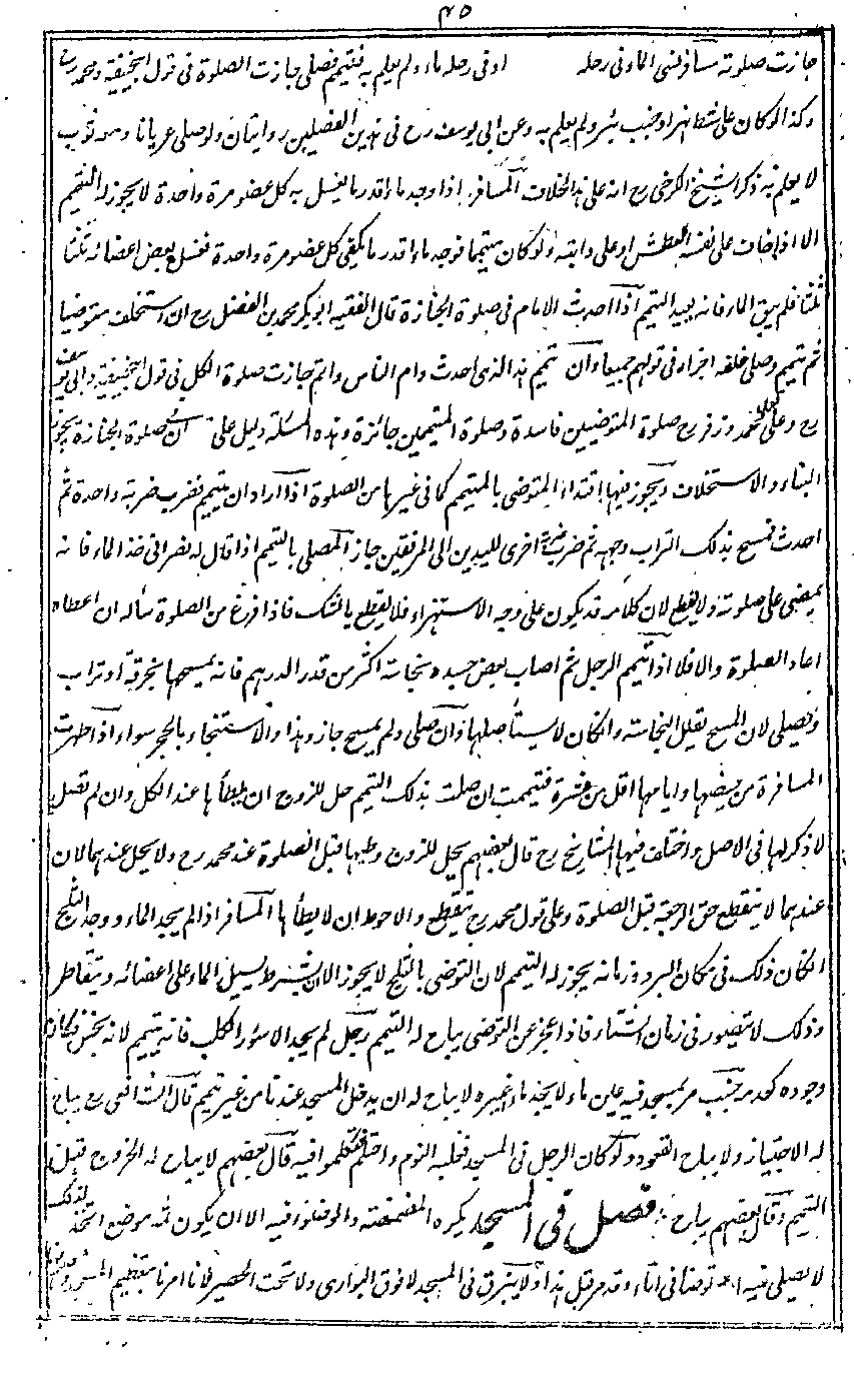 ٤٥
جازت صلوته مسافر نسى الماء فى رحله او فى رحله ماء ولم يعلم به فتيمم فصلى جازت الصلوة فى قول ابيحنيفة ومحمد رح
وكذا لو كان على شط نهر او جنب بئر ولم يعلم به وعن ابى يوسف رح فى هذين الفصلين روايتان ولو صلى عريانا ومعه ثوب
لا يعلم به ذكر الشيخ الكرخى رح انه على هذا الخلاف المسافر اذا وجد ماء قدر ما يغسل به كل عضو مرة واحدة لا يجوز له التيمم
الا اذا خاف على نفسه العطش او على دابته ولو كان متيمما فوجد ماء قدر ما يكفى كل عضو مرة واحدة فغسل بعض اعضائه ثلثا
ثلثا فلم يبق الماء فانه يعيد التيمم اذا احدث الامام فى صلوة الجنازة قال الفقيه ابو بكر محمد بن الفضل رح ان استخلف متوضيا
ثم تيمم وصلى خلفه اجزاه فى قولهم جميعا وان تيمم هذا الذى احدث وام الناس واتم جازت صلوة الكل فى قول ابيحنيفة وابى يوسف
رح وعلى قول محمد وزفر رح صلوة المتوضيين فاسدة وصلوة المتيممين جائزة وهذه المسئلة دليل على ان صلوة الجنازة يجوز
البناء والاستخلاف ويجوز فيها اقتداء المتوضى بالمتيمم كما فى غيرها من الصلوة اذا اراد ان يتيمم فضرب ضربة واحدة ثم
احدث فمسح بذلك التراب وجهه ثم ضرب ضربة اخرى لليدين الى المرفقين جاز المصلى بالتيمم اذا قال له نصرانى خذ الماء فانه
يمضى على صلوته ولا يقطع لان كلامه قد يكون على وجه الاستهزاء فلا يقطع بالشك فاذا فرغ من الصلوة سأله ان اعطاه
اعاد الصلوة والا فلا اذا تيمم الرجل ثم اصاب بعض جسده نجاسة اكثر من قدر الدرهم فانه يمسحها بخرقة او تراب
ويصلى لان المسح يقلل النجاسة وان كان لا يستأصلها وان صلى ولم يمسح جاز وهذا والاستنجاء بالحجر سواء اذا طهرت
المسافرة من حيضها وايامها اقل من عشرة فتيممت ان صلت بذلك التيمم حل للزوج ان يطأها عند الكل وان لم تصل
لا ذكر لها فى الاصل واختلف فيها المشايخ رح قال بعضهم يحل للزوج وطيها قبل الصلوة عند محمد رح ولا يحل عندهما لان
عندهما لا ينقطع حق الرجعة قبل الصلوة وعلى قول محمد رح ينقطع والاحوط ان لا يطأها المسافر اذا لم يجد الماء ووجد الثلج
ان كان ذلك فى مكان البرد وزمانه يجوز له التيمم لان التوضى بالثلج لا يجوز الا ان يشترط يسيل الماء على اعضائه ويتقاطر
وذلك لا يتصور فى زمان الشتاء فاذا عجز عن التوضى يباح له التيمم رجل لم يجد الا سؤر الكلب فانه يتيمم لانه نجس فكان
وجوده كعدمه جنب مر بمسجد فيه عين ماء لا يجد ماء غيره لا يباح له ان يدخل المسجد عندنا من غير تيمم قال الشافعى رح يباح
له الاجتياز ولا يباح القعود ولو كان الرجل فى المسجد فغلبه النوم واحتلم تكلموا فيه قال بعضهم لا يباح له الخروج قبل
التيمم وقال بعضهم يباح فصل فى المسجد يكره المضمضة والوضوء فيه الا ان يكون ثمه موضع اتخذ لذلك
لا يصلى فيه او توضأ فى اناء وقد مر قبل هذا ولا يبزق فى المسجد لا فوق البوارى ولا تحت الحصير لانا امرنا بتعظيم المسجد